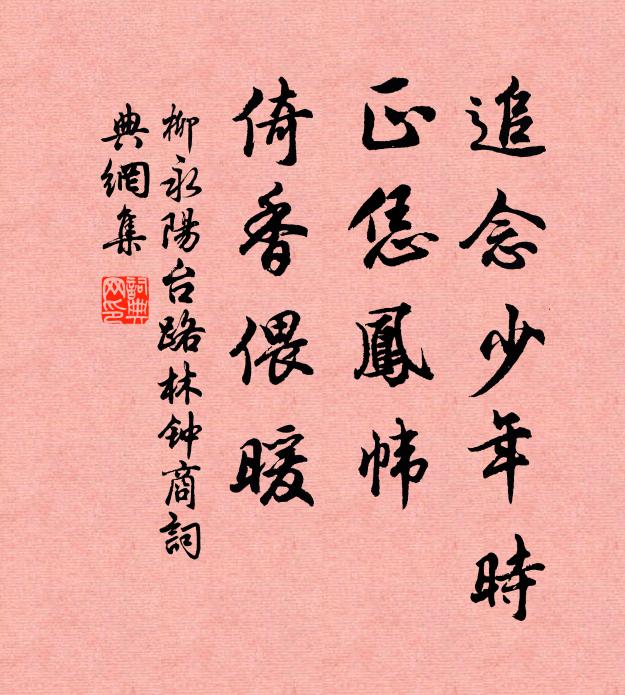 追念少年時
正恁鳳幃
倚香偎暖
柳永陽台路林钟商詞
典網集
詞典網印